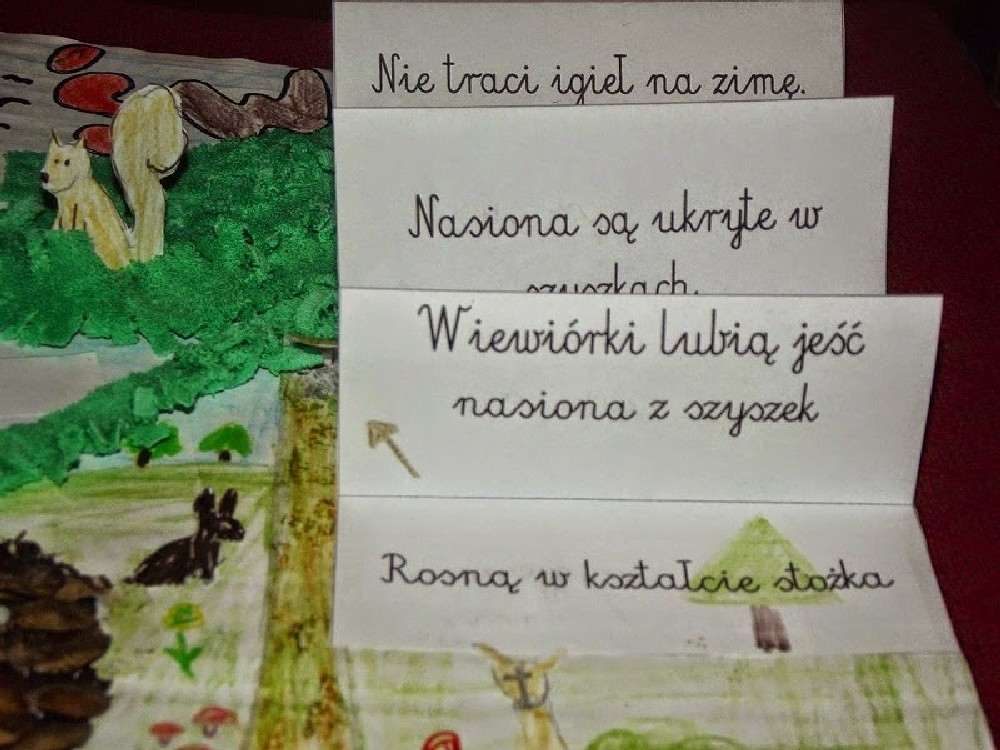 Nie traci igieł na zimę.
Nasiona są ukryte w
szyszkach.
Wiewiórki lubią jeść
nasiona z szyszek
Rosną w kształcie stożka